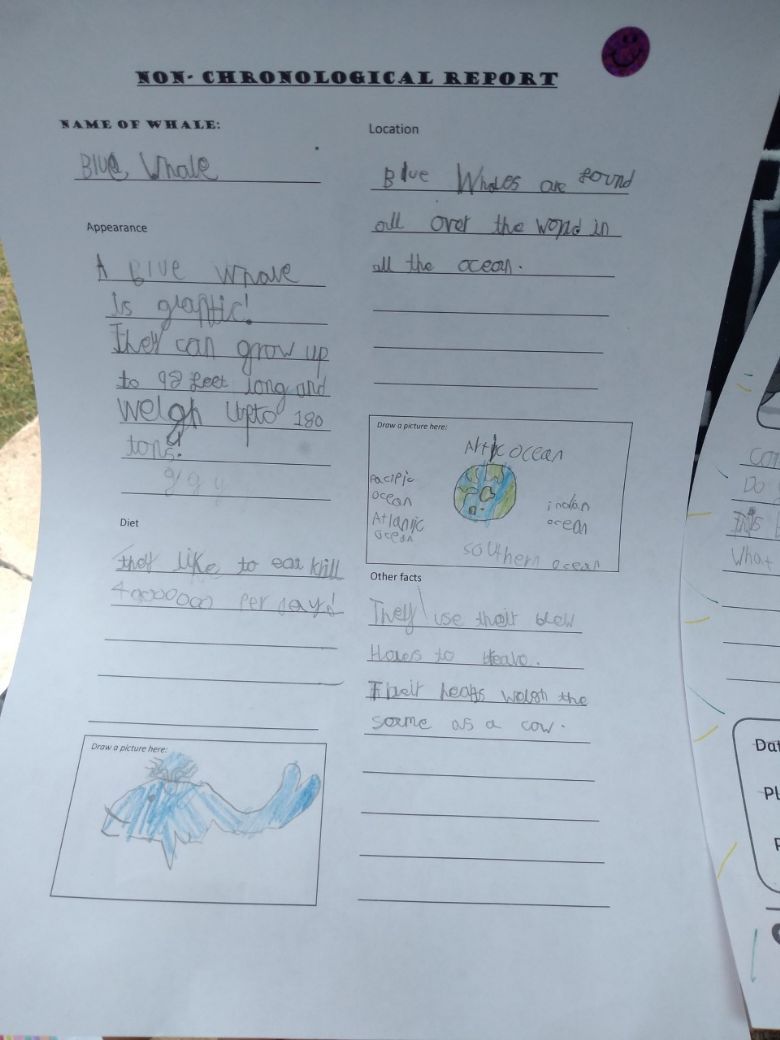 NON- CHRONOLOGICAL REPORT
NAME OF WHALE:
Blue Whale
Appearance
A Blue Whale
is
They can grow up
to 98 feet long and
weigh upto 180
tons!
Diet
they like to eat krill
per day!
Draw a picture here:
Location
Blue Whales are found
all over the world in
all the ocean.
Draw a picture here:
Artic ocean
Pacific
ocean
Atlantic
ocean
indian
ocean
southern ocean
Other facts
They use their blow
Holes to
Their hearts weigh the
same as a cow.
Do
What